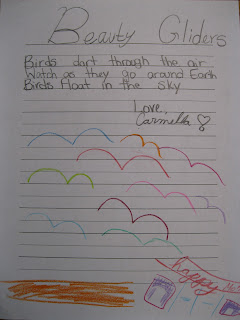 Beauty Gliders
Birds dart through the air
Watch as they go around Earth
Birds Float in the sky
Love,
Carmella
happy